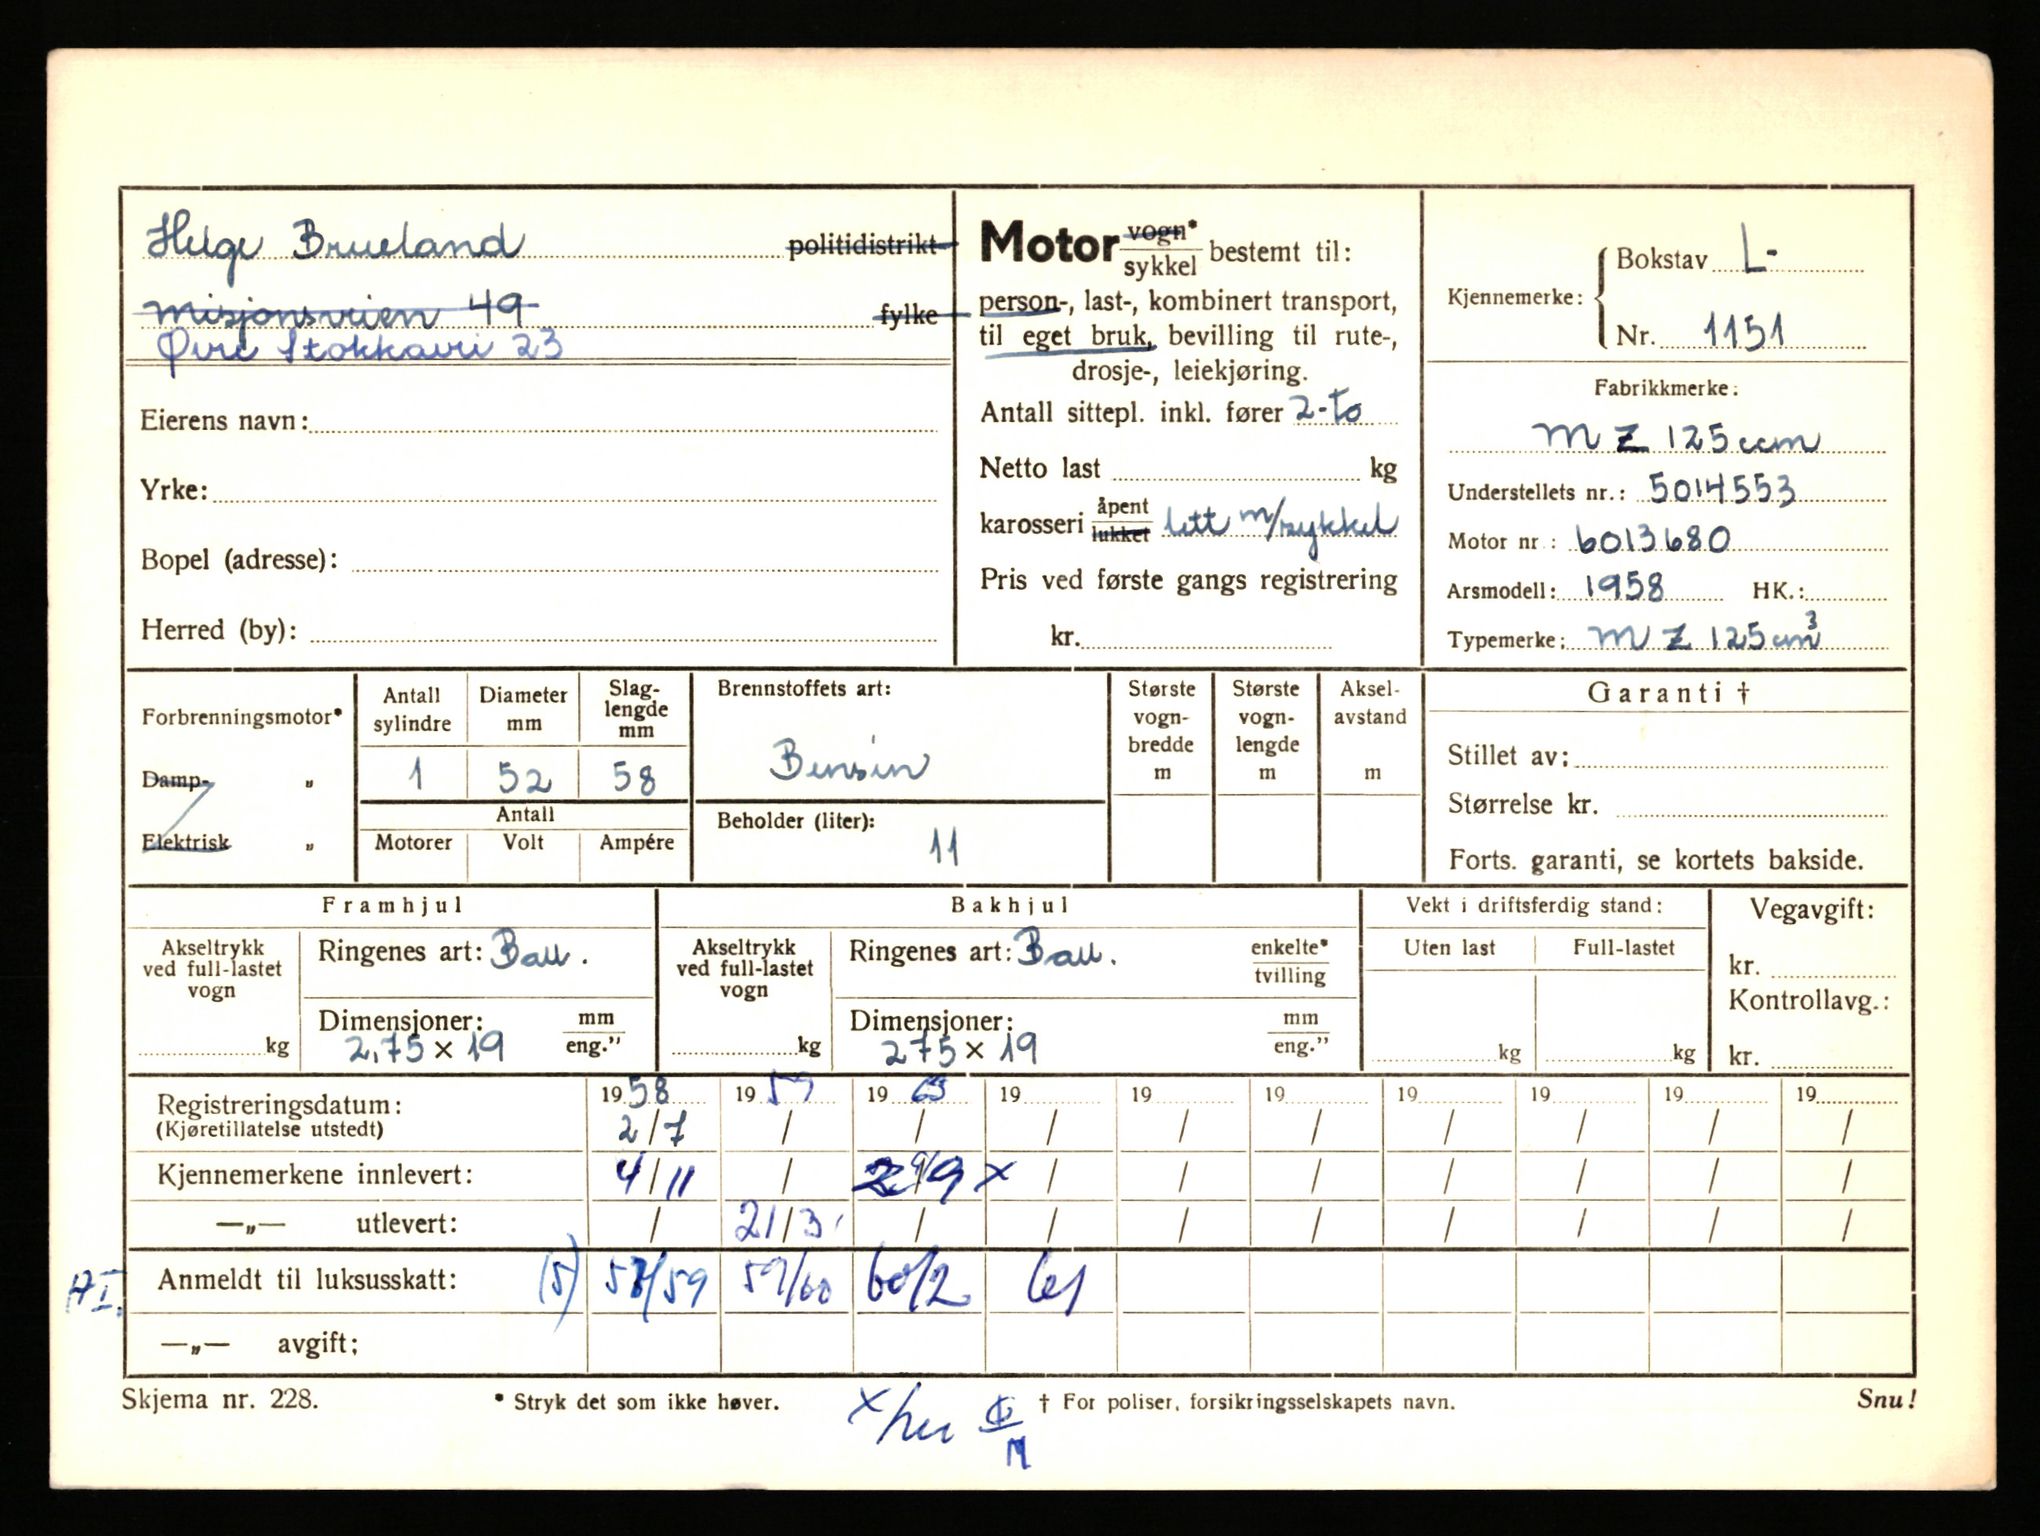 Helge Brueland politidistrikt
Misjonsveien 49 fylke
Øvre Stokkavei 23
Eierens navn:
Yrke:
Bopel (adresse):
Herred (by):
Motor vogn* sykkel bestemt til:
person-, last-, kombinert transport,
til eget bruk, bevilling til rute-,
drosje-, leiekjøring.
Antall sittepl. inkl. fører 2-to
Netto last kg
karosseri åpent lukket lett m/sykkel
Pris ved første gangs registrering
kr.
Kjennemerke: Bokstav L-
Nr. 1151
Fabrikkmerke:
MZ 125 ccm
Understellets nr.: 5014553
Motor nr: 6013680
Arsmodell: 1958 HK.:
Typemerke: MZ 125 cm³
Forbrenningsmotor*
Damp- „
Elektrisk „
Antall sylindre
Diameter mm
Slag-lengde mm
1 52 58
Antall
Motorer Volt Ampére
Brennstoffets art:
Bensin
Beholder (liter):
11
Største vogn-bredde m
Største vogn-lengde m
Aksel-avstand m
Garanti †
Stillet av:
Størrelse kr.
Forts. garanti, se kortets bakside.
Framhjul
Akseltrykk ved full-lastet vogn
kg
Ringenes art: Ball.
Dimensjoner: mm eng."
2.75 x 19
Bakhjul
Akseltrykk ved full-lastet vogn
kg
Ringenes art: Ball. enkelte* tvilling
Dimensjoner: mm eng."
275 x 19
Vekt i driftsferdig stand:
Uten last Full-lastet
kg kg
Vegavgift:
kr.
Kontrollavg.:
kr.
Registreringsdatum: 1958 1959 1963 19 19 19 19 19 19 19
(Kjøretillatelse utstedt) 2/7 / / / / / / / / /
Kjennemerkene innlevert: 4/11 / 9/9 x / / / / / / /
—„— utlevert: / 21/3 / / / / / / / /
Anmeldt til luksusskatt: (5) 58/59 59/60 60/2 61
—„— avgift:
Skjema nr. 228. * Stryk det som ikke høver. † For poliser, forsikringsselskapets navn. Snu!